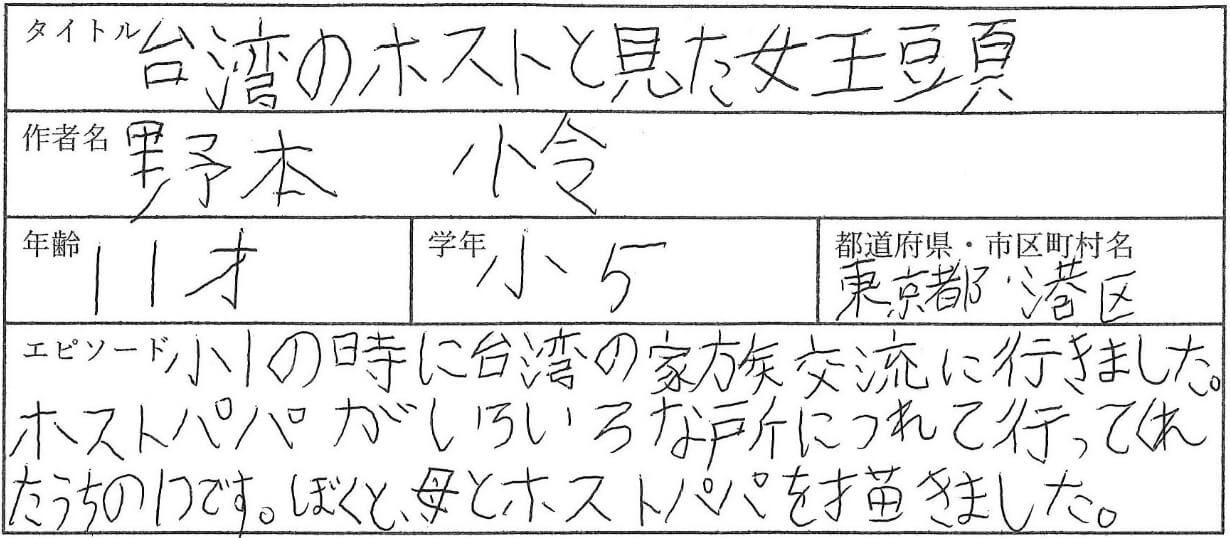 タイトル 台湾のホストと見た女王頭
作者名 野本 小令
年齢 11才 学年 小5 都道府県・市区町村名 東京都 港区
エピソード 小1の時に台湾の家族交流に行きました。
ホストパパがいろいろな所につれて行ってくれ
たうちの1つです。ぼくと、母とホストパパを描きました。